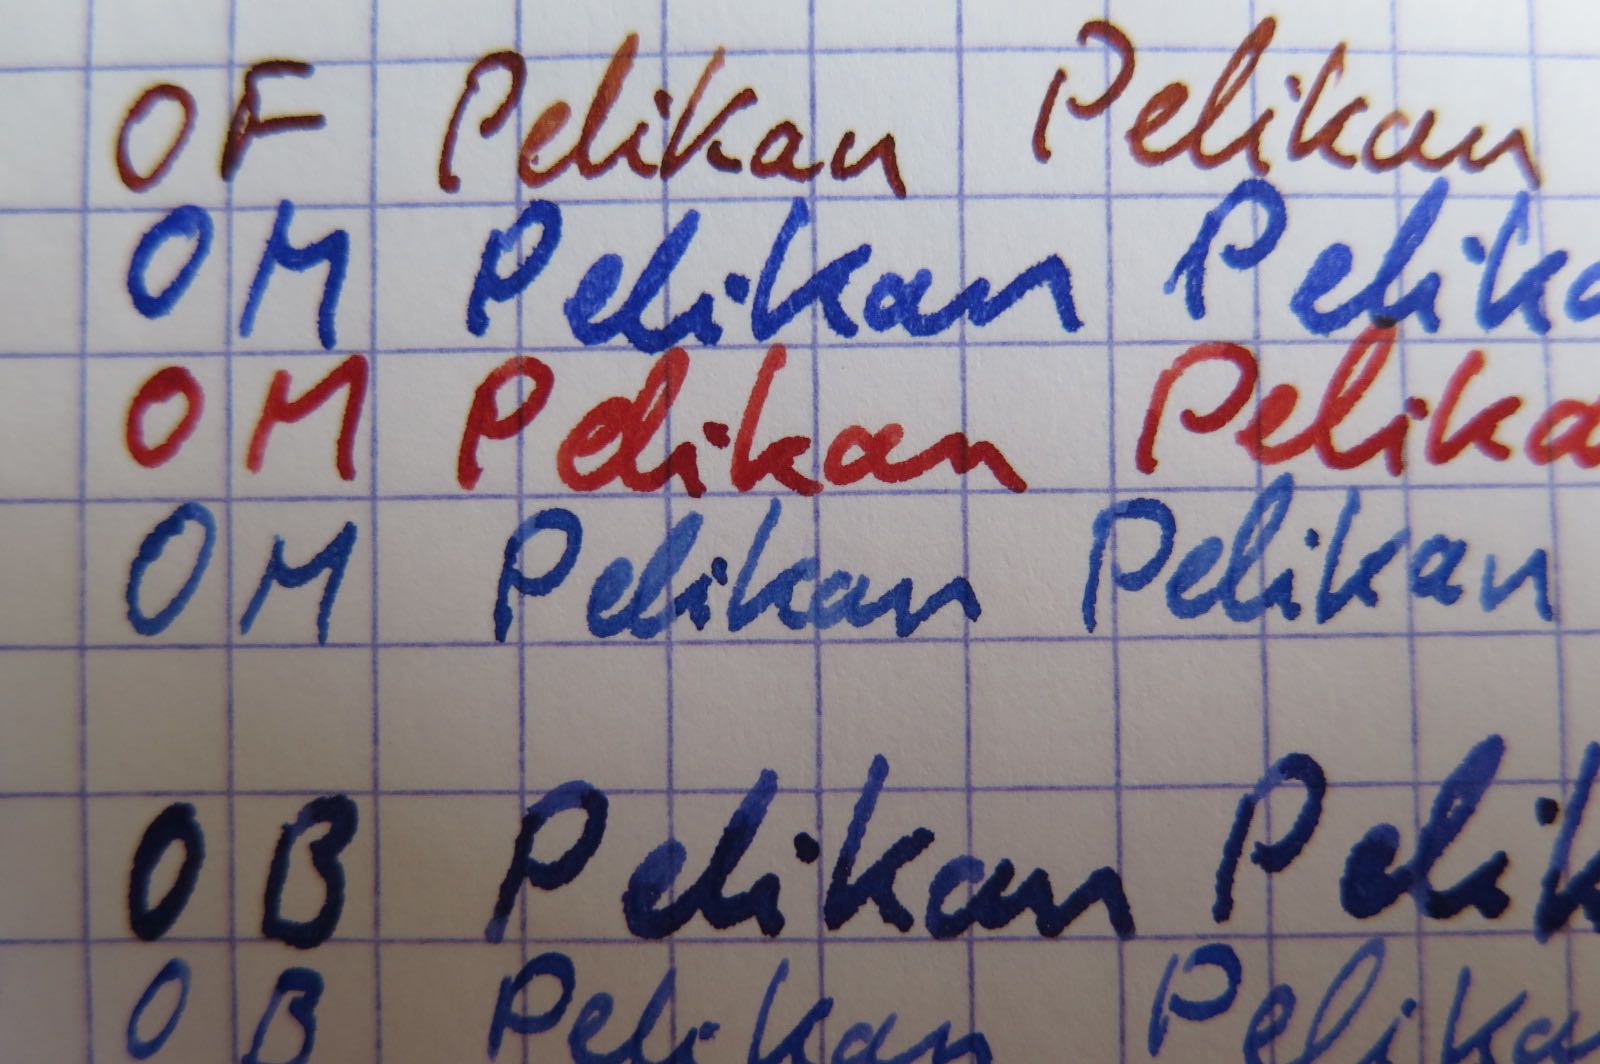 OF Pelikan Pelikan
OM Pelikan Pelika
OM Pelikan Pelika
OM Pelikan Pelikan
OB Pelikan Pelik
OB Pelikan Pelikan